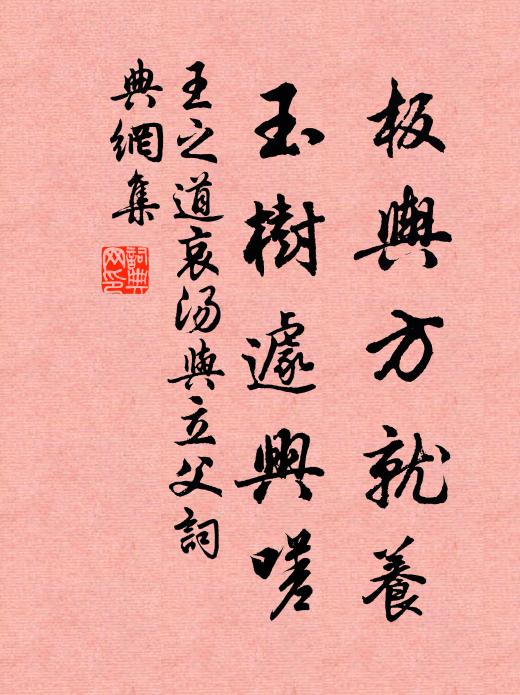 板輿方就養
玉樹遽興嗟
王之道哀湯與立父詞
典網集
詞典
网印